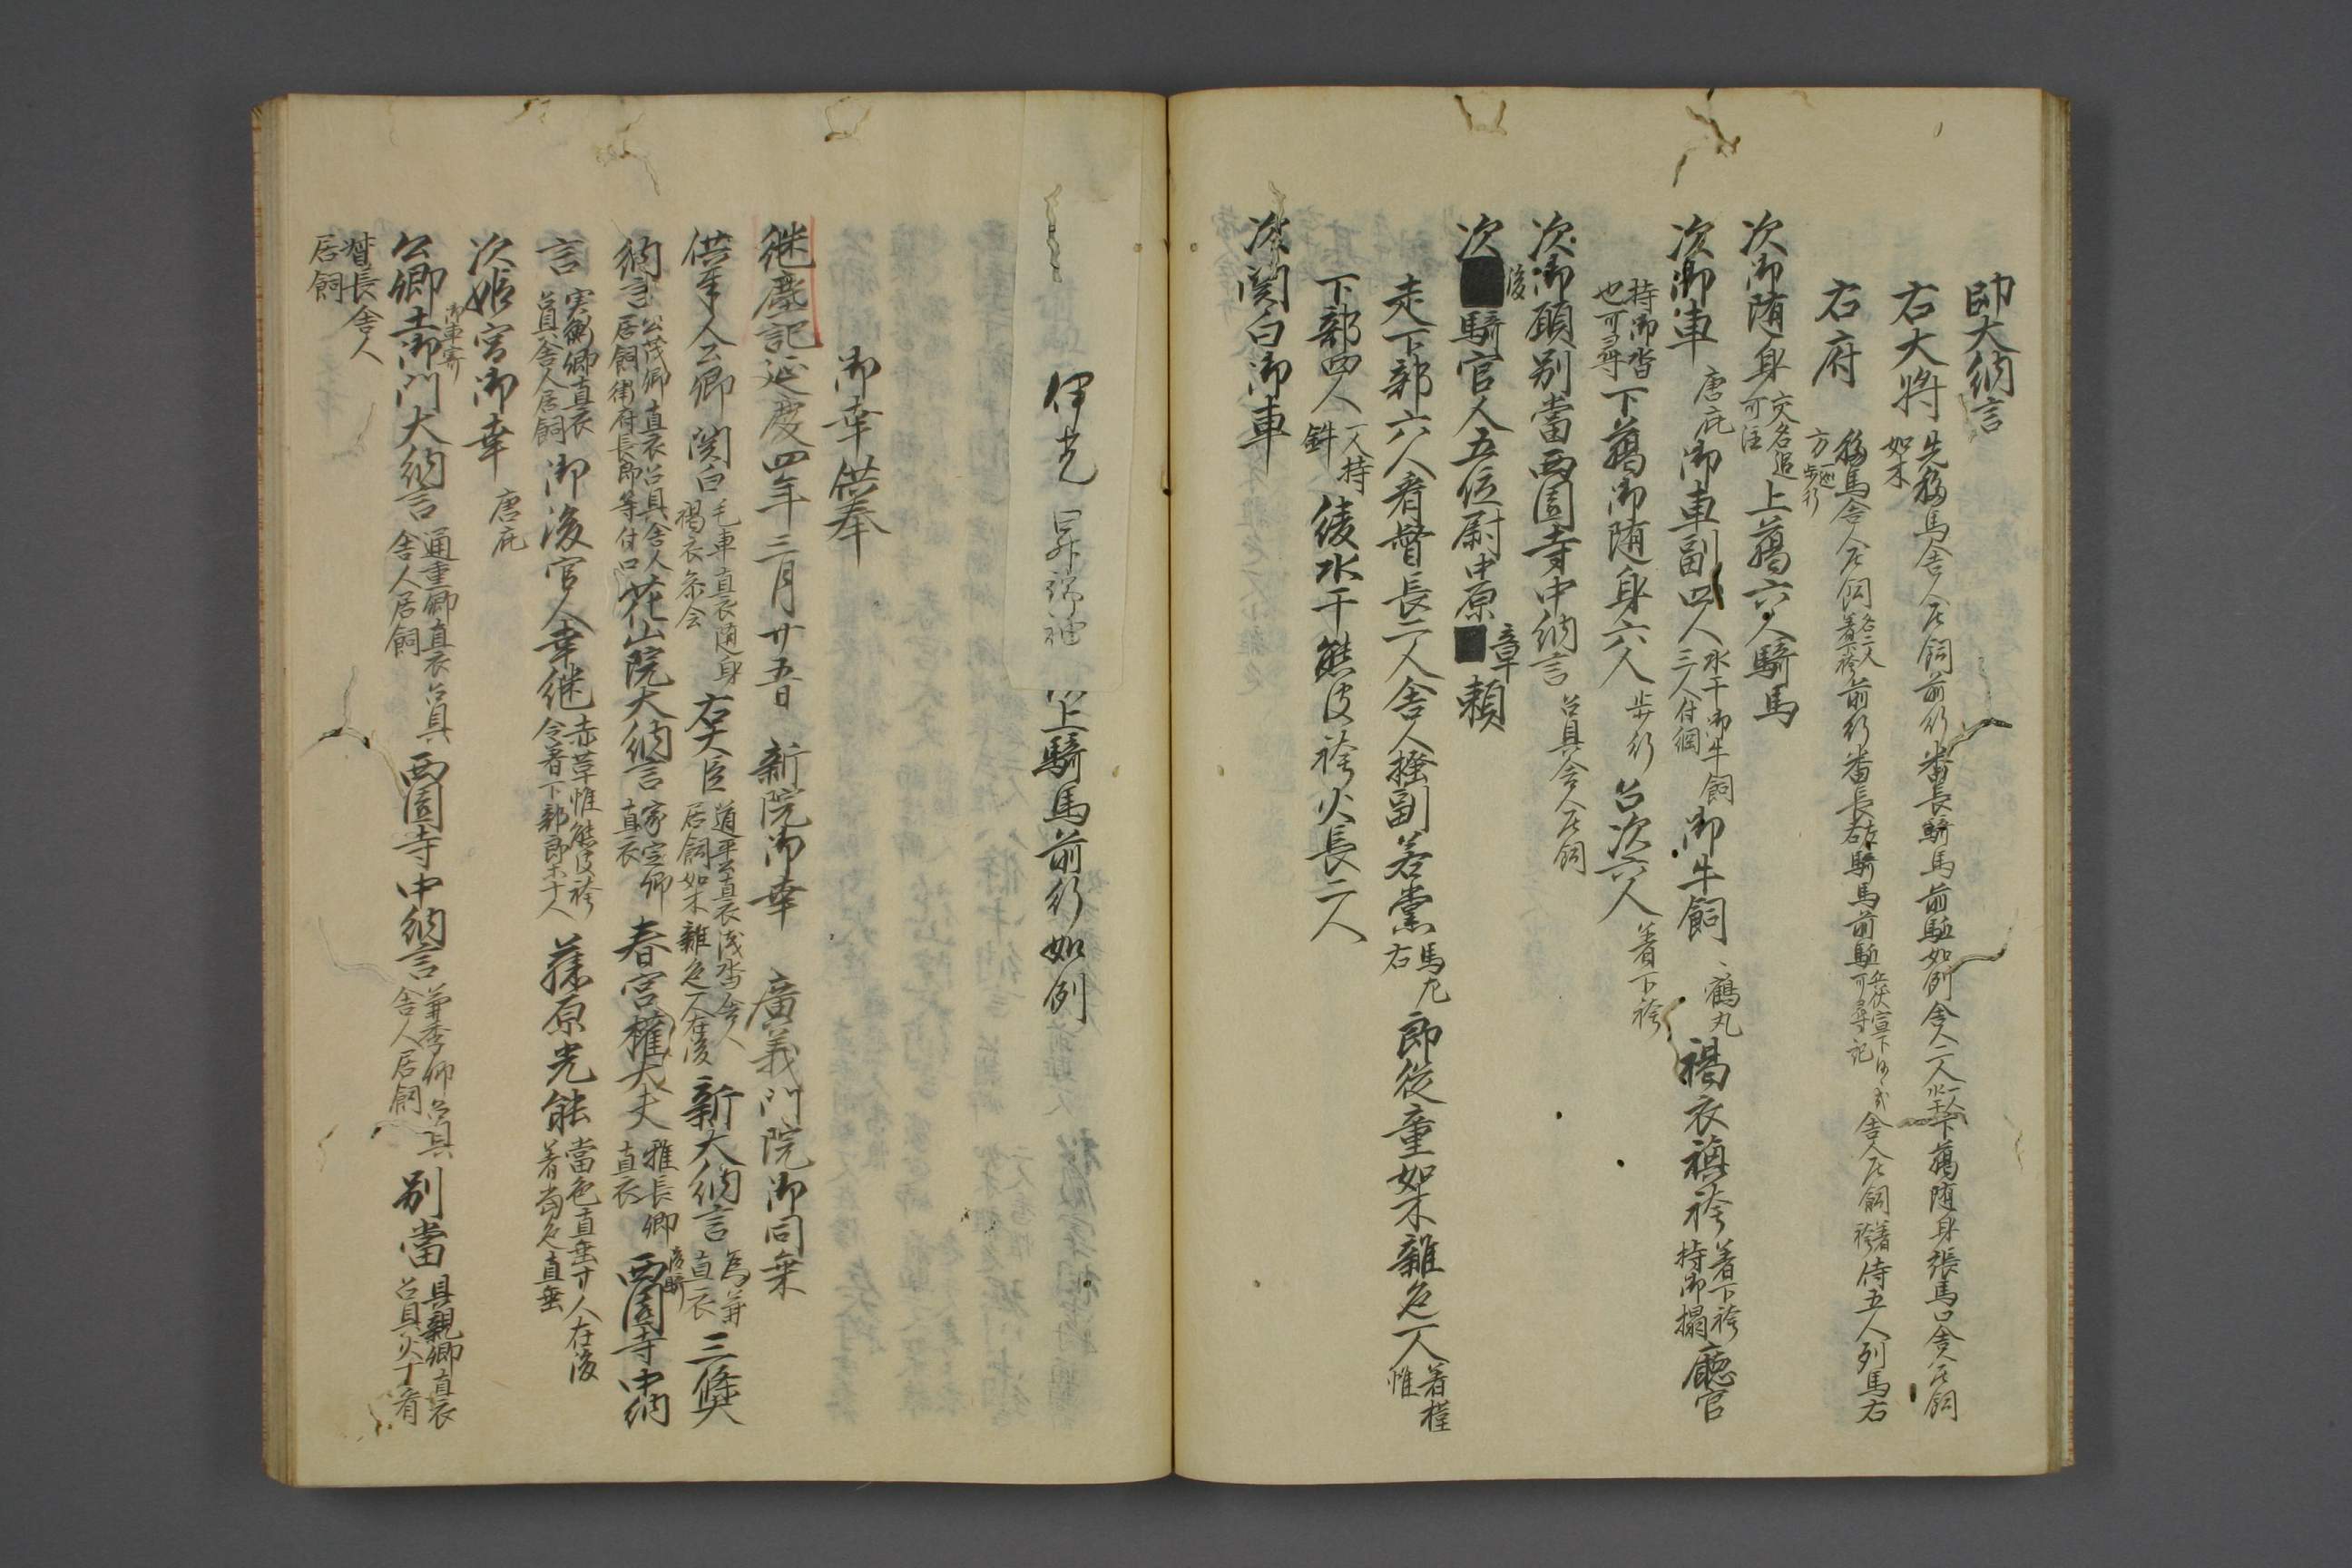 帥大納言
右大将 先移馬舎人居飼前行番長騎馬前駈如例舎人二人 下﨟随身張馬口舎人居飼
如木
右府 移馬舎人居飼 各二人着袴 前行番長 左右 騎馬前駈 可尋記 舎人居飼 着袴 侍五人列馬右
方 歩行
次御随身 交名追可注 上﨟六人騎馬
次御車 唐庇 御車副四人 水干御牛飼三人付綱 御牛飼 鶴丸 褐衣 袴 着下袴持御榻 廳官
持御沓也可尋 下﨟御随身六人 歩行 召次六人 着下袴
次御顧別當西園寺中納言 召具舎人居飼
次 後 騎官人五位尉中原 章 頼
走下部六人看督長二人舎人 副若黨 馬左右 郎従童如木雑色一人 着 帷
下部四人 一人持鉾 綾水干熊皮袴火長二人
次関白御車
伊光 昇
上騎馬前行如例
御幸供奉
継塵記延慶四年三月廿五日 新院御幸 廣義門院御同乗
供奉人公卿 関白 毛車直衣随身褐衣参会 右大臣 道平公直衣浅沓舎人居飼如木雑色一人在後 新大納言 為兼直衣 三條大
納言 公茂卿直衣召具舎人居飼衛府長郎等付口 花山院大納言 家定卿直衣 春宮権大夫 雅長卿直衣 後騎 西園寺中納
言 実衡卿直衣召具舎人居飼 御後官人章継 赤草帷熊皮袴令着下部郎等十人 藤原光能 當色直垂廿人在後着当色直垂
次姫宮御幸 唐庇
公卿土御門大納言 御車寄 通重卿直衣召具舎人居飼 西園寺中納言 兼季卿召具舎人居飼 別當 具親卿直衣召具火丁看
督長舎人
居飼